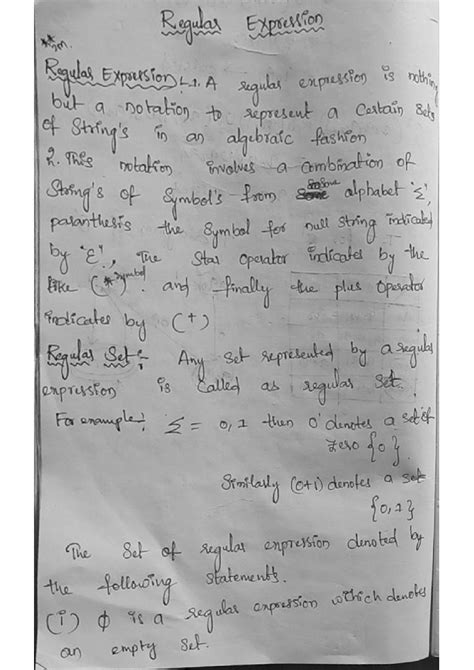 Regular Expression
Regular Expression :- 1. A regular expression is nothing
but a notation to represent a Certain Sets
of String's in an algebraic fashion
2. This notation involves a Combination of
String's of Symbol's from Some alphabet 'Σ',
paranthesis the symbol for null string indicated
by 'Ɛ', The Star Operator indicated by the
like (* symbol) and finally the plus Operator
indicates by (+)
Regular Set :- Any set represented by a regular
expression is Called as regular set.
For example:- Σ = 0,1 then 0' denotes a set of
zero {0}.
Similarly (0+1) denotes a set
{0,1}
The Set of regular expression denoted by
the following statements.
(i) φ is a regular expression which denotes
an empty set.